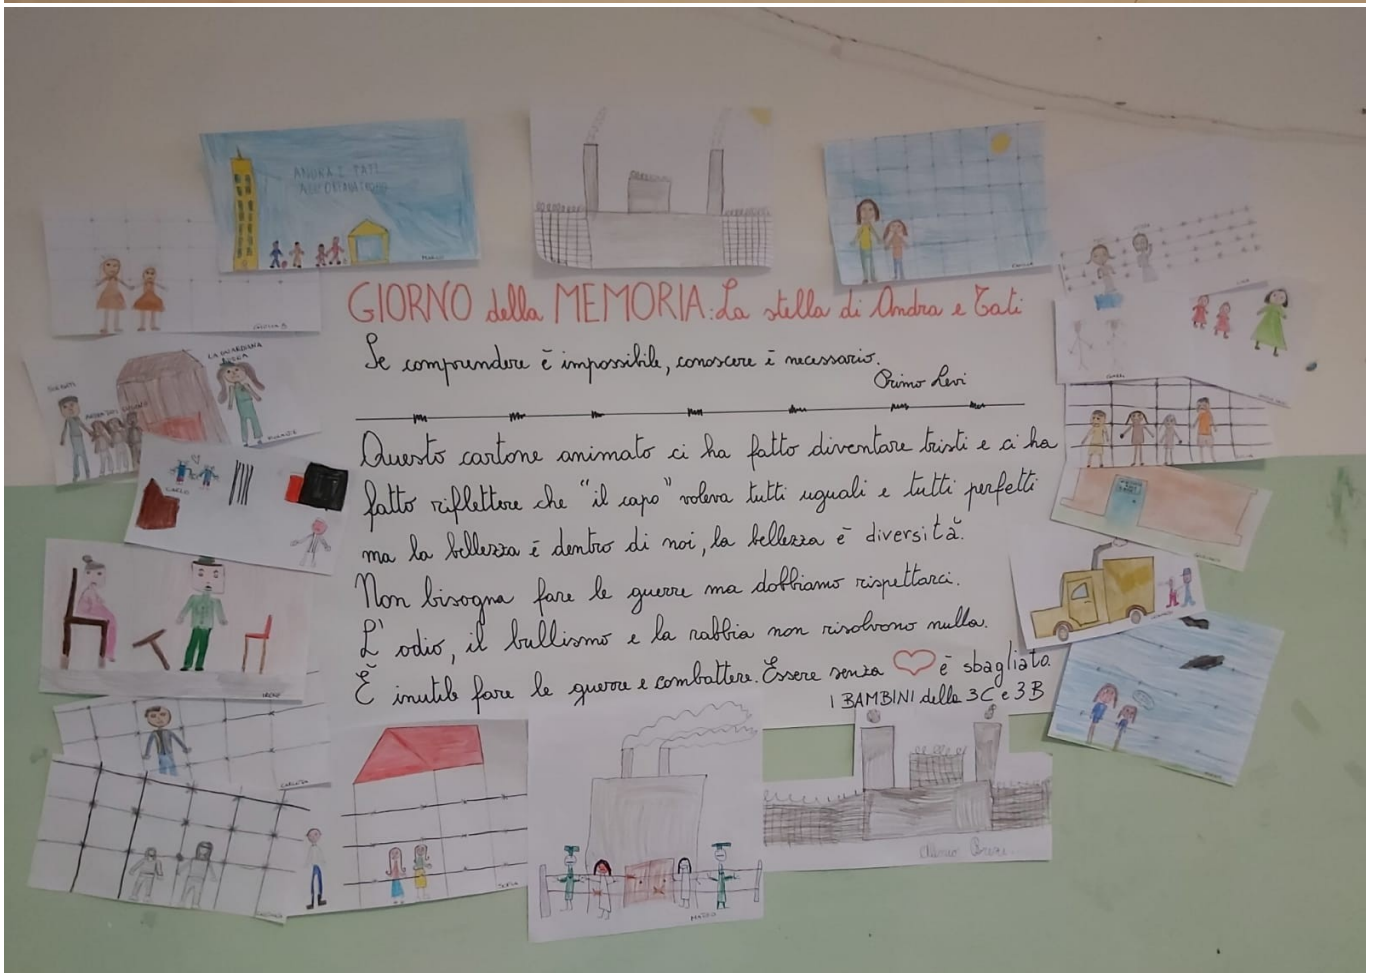 ANDRA E TATI
MARCO
GIORNO della MEMORIA: La stella di Andra e Tati
Se comprendere è impossibile, conoscere è necessario.
Primo Levi
LA GUARDIANA
CARLO
Questo cartone animato ci ha fatto diventare tristi e ci ha
fatto riflettere che "il capo" voleva tutti uguali e tutti perfetti
ma la bellezza è dentro di noi, la bellezza è diversità.
Non bisogna fare le guerre ma dobbiamo rispettarci.
L'odio, il bullismo e la rabbia non risolvono nulla.
È inutile fare le guerre e combattere. Essere senza ❤ è sbagliato.
I BAMBINI della 3C e 3B
IRENE
SOFIA
MATTEO